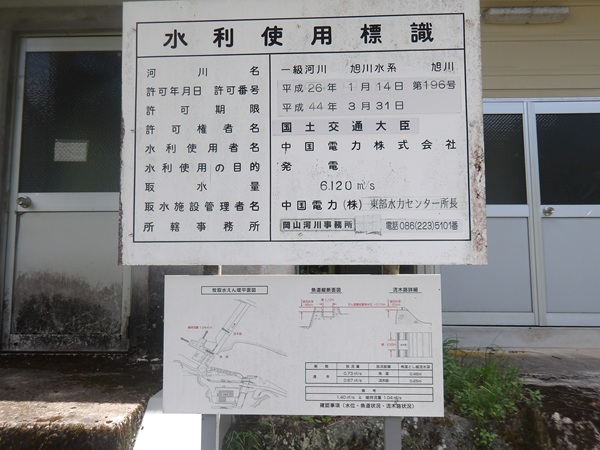 水利使用標識
河川名 一級河川 旭川水系 旭川
許可年月日 許可番号 平成26年1月14日 第196号
許可期限 平成44年3月31日
許可権者名 国土交通大臣
水利使用者名 中国電力株式会社
水利使用の目的 発電
取水量 6.120m³/s
取水施設管理者名 中国電力(株)東部水力センター所長
所轄事務所 岡山河川事務所 電話086(223)5101番
魚道縦断面図
流木路詳細
確認事項(水位・魚道状況・流木路状況)